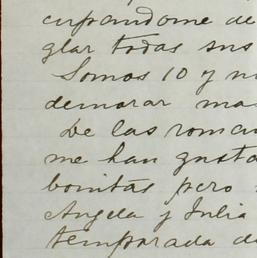 cupandome de
glar todas sus
Somos 10 y
demorar mas
De las
me han gusta
bonitas pero
Angela y Julia
temporada de